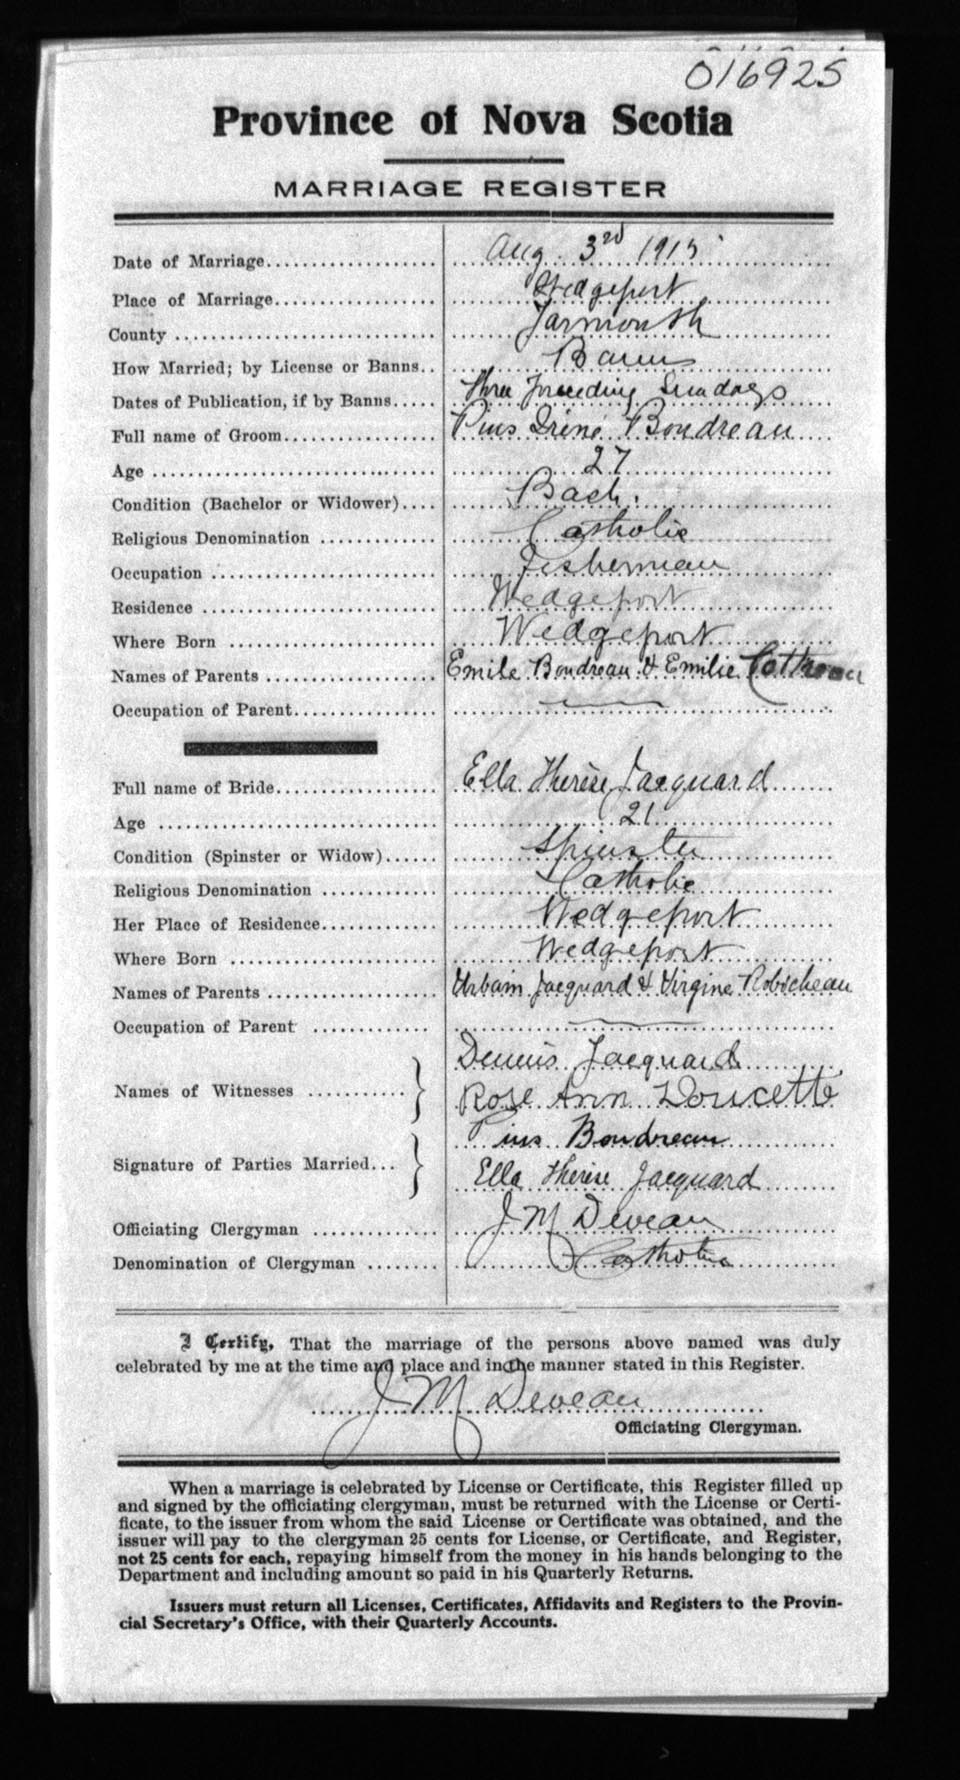 016925
Province of Nova Scotia
MARRIAGE REGISTER
Date of Marriage.................... Aug 3rd 1915
Place of Marriage................... Wedgeport
County .............................. Yarmouth
How Married; by License or Banns.. Banns
Dates of Publication, if by Banns..... Three Preceeding Sundays
Full name of Groom.................. Pius Iréné Boudreau
Age ................................. 27
Condition (Bachelor or Widower).... Bach.
Religious Denomination ............. Catholic
Occupation .......................... Fisherman
Residence ........................... Wedgeport
Where Born ......................... Wedgeport
Names of Parents .................... Emile Boudreau & Emilie
Occupation of Parent.................
Full name of Bride................... Ella Therèse Jacquard
Age ................................. 21
Condition (Spinster or Widow)...... Spinster
Religious Denomination ............. Catholic
Her Place of Residence.............. Wedgeport
Where Born ......................... Wedgeport
Names of Parents .................... Urbain Jacquard & Virgine Robicheau
Occupation of Parent .............
Dennis Jacquard
Names of Witnesses ...........
Rose Ann Doucette
Pius Boudreau
Signature of Parties Married...
Ella Therese Jacquard
Officiating Clergyman ............. J M Deveau
Denomination of Clergyman ........ Catholic
I Certify, That the marriage of the persons above named was duly
celebrated by me at the time and place and in the manner stated in this Register.
J M Deveau
Officiating Clergyman.
When a marriage is celebrated by License or Certificate, this Register filled up
and signed by the officiating clergyman, must be returned with the License or Certi-
ficate, to the issuer from whom the said License or Certificate was obtained, and the
issuer will pay to the clergyman 25 cents for License, or Certificate, and Register,
not 25 cents for each, repaying himself from the money in his hands belonging to the
Department and including amount so paid in his Quarterly Returns.
Issuers must return all Licenses, Certificates, Affidavits and Registers to the Provin-
cial Secretary's Office, with their Quarterly Accounts.